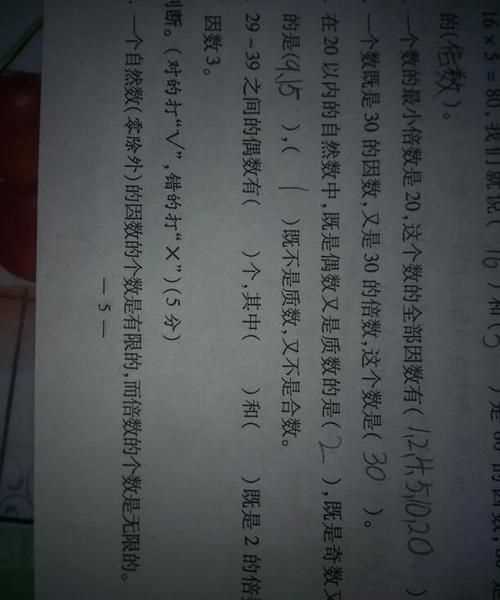 16×5=80,我们就说(16)和(5)是80的
的(倍数)。
一个数的最小倍数是20,这个数的全部因数有(1,2,4,5,10,20)
一个数既是30的因数,又是30的倍数,这个数是(30)。
在20以内的自然数中,既是偶数又是质数的是(2),既是奇数又
的是(9,15),(1)既不是质数,又不是合数。
29-39之间的偶数有( )个,其中( )和( )既是2的倍
因数3。
判断。(对的打“√”,错的打“×”)(5分)
一个自然数(零除外)的因数的个数是有限的,而倍数的个数是无限的。
— 5 —